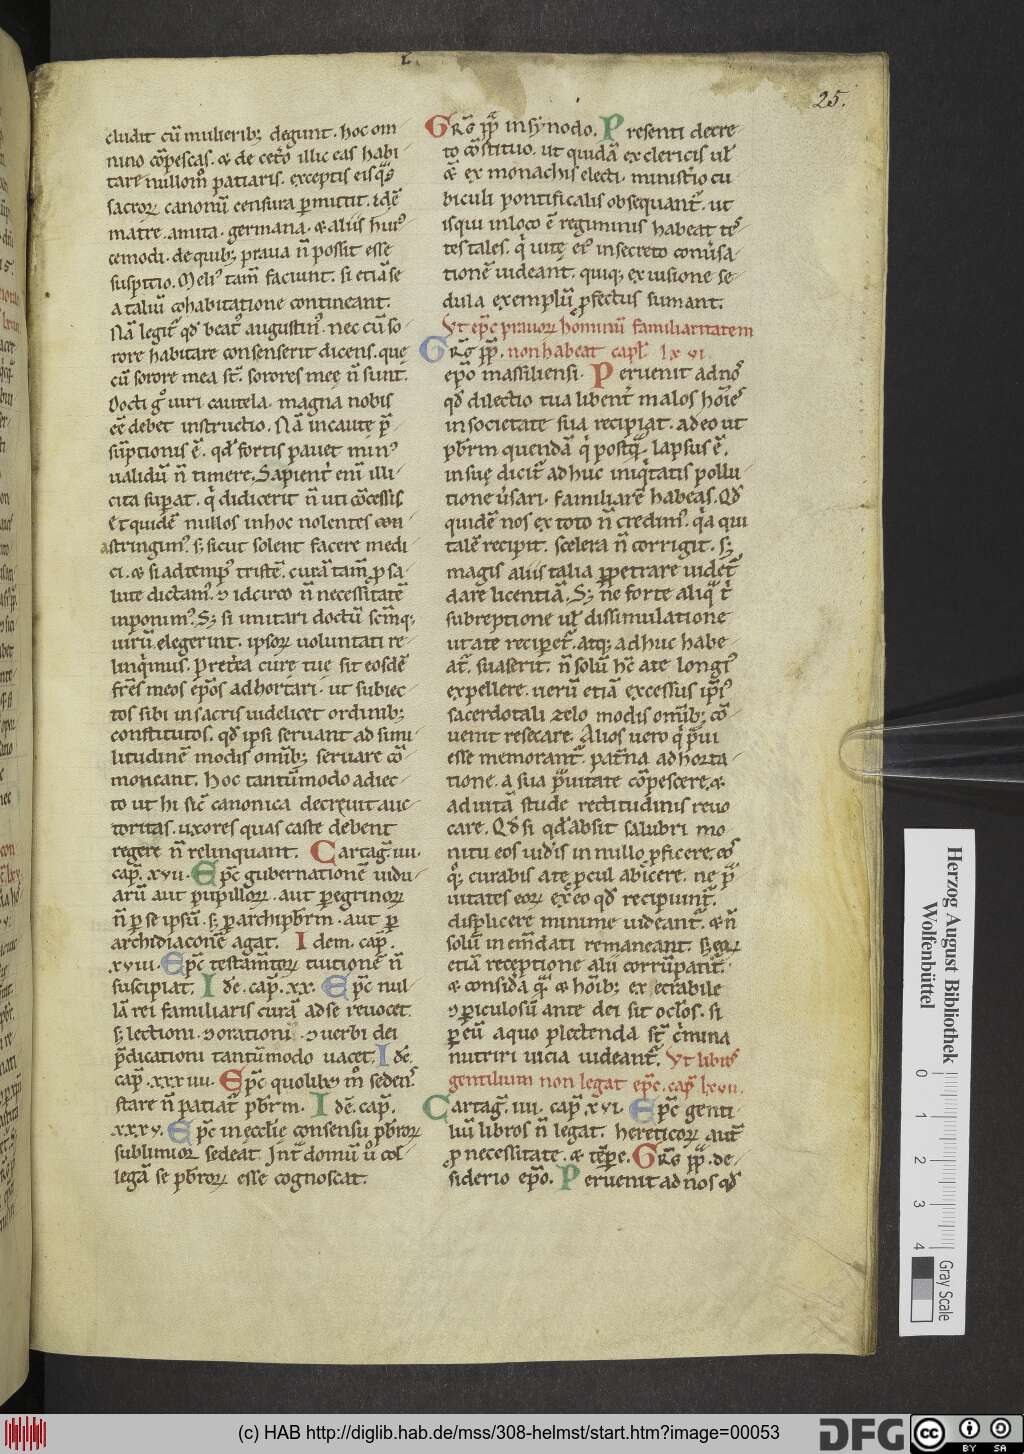 25.
cludit cū mulierib; degunt. hoc om
nino cōpescas. & de cetō illic eas habi
tare nullom̊ patiaris. exceptis eis qͣs
sacroꝝ canonū censura ꝑmittit. idē
matre. amita. germana. & aliis huiꝰ
cemodi. de quib; praua n̄ possit esse
suspitio. Meliꝰ tam̄ faciunt. si etiā se
a taliū cohabitatione contineant.
Nā legit̄ qd̄ beatꝰ augustinꝰ. nec cū so
rore habitare consenserit dicens. quę
cū sorore mea st̄. sorores meę n̄ sunt.
Docti g̊ uiri cautela. magna nobis
eē debet instructio. Nā incautę p̄
sūptionis ē. qd̄ fortis pauet minꝰ
ualidū n̄ timere. Sapient̓ enī illi
cita supat. q̓ didicerit n̄ uti cōcessis.
Et quidē nullos in hoc nolentes con
astringimꝰ. s; sicut solent facere medi
ci. & si ad tempꝰ tristē. curā tam̄ ꝓ sa
lute dictamꝰ. ⁊ idcirco n̄ necessitatē
inponimꝰ. S; si imitari doctū scīmq;
uirū elegerint. ipsoꝝ uoluntati re
linqͥmus. Pretͤa cure tue sit eosdē
fr̄es meos ep̄os adhortari. ut subiec
tos sibi in sacris uidelicet ordinib;
constitutos. qd̄ ipsi seruant ad simi
litudinē modis omīb; seruare cō
moneant. hoc tantūmodo adiec
to ut hi sic̄ canonica decreuit auc
toritas. uxores quas caste debent
regere n̄ relinquant. Cartag̅. iiii.
cap̄. xvii. Ep̄c gubernationē uidu
arū aut pupilloꝝ. aut ꝑegrinoꝝ
n̄ ꝑ se ipsū. s; ꝑ archipb̄rm. aut ꝑ
archidiaconē agat. Idem. cap̄.
xviii. Ep̄c testam̄toꝝ tuitionē n̄
suscipiat. Idē. cap̄. xx. Ep̄c nul
lā rei familiaris curā ad se reuocet.
s; lectioni. ⁊ orationi. ⁊ uerbi dei
p̄dicationi tantūmodo uacet. Idē.
cap̄. xxxiiii. Ep̄c quolib; m̊ sedens
stare n̄ patiat̄ pb̄rm. Idē. cap̄.
xxxv. Ep̄c in ęcclie consensu pb̄roꝝ
sublimior sedeat. Int̄ domū ů col
legā se pb̄roꝝ esse cognoscat.
Greḡ pp̄ in synodo. Presenti decre
to cōstituo. ut quidā ex clericis ul̄
&̄ ex monachis electi. ministrio cu
biculi pontificalis obsequant̄. ut
is qui in loco ē regiminis habeat tes
tes tales. q̓ uitę eiꝰ in secreto conūsa
tionē uideant. quiq; ex uisione se
dula exemplū ꝓfectus sumant.
Vt ep̄c prauoꝝ hominū familiaritatem
Greḡ pp̄. non habeat capl̄ lxvi.
ep̄o massiliensi. Peruenit ad nos
qd̄ dilectio tua libent̓ malos hoīes
in societate sua recipiat. adeo ut
pb̄rm quendā q̓ postqͣ lapsus ē.
in suę dicit̄ adhuc iniqͥtatis pollu
tione ūsari. familiarē habeas. Qd̄
quidē nos ex toto n̄ credimꝰ. qͥa qui
talē recipit. scelera n̄ corrigit. s;
magis aliis talia ꝑpetrare uidet̄
dare licentiā. S; ne forte aliqͣ t̓
subreptione ul̄ dissimulatione
ut a te recipet̄. atq; adhuc habe
at̄. suaserit. n̄ solū hc̄ a te longiꝰ
expellere. uerū etiā excessus ip̄iꝰ
sacerdotali zelo modis omīb; cō
uenit resecare. Alios uero q̓ p̄ui
esse memorant̄. pat̄na adhorta
tione. a sua p̄uitate cōpescere. &
ad uitā stude rectitudinis reuo
care. Qd̄ si qd̄ absit salubri mo
nitu eos uidis in nullo ꝓficere. eos
q; curabis a te ꝓcul abicere. ne p̄
uitates eoꝝ ex eo qd̄ recipiunt̄.
displicere minime uideant̄. & n̄
solū in em̄dati remaneant. s; eoꝝ
etiā receptione alii corrūpant̄.
& considā qͣ & hoīb; execrabile
⁊ ꝑiculosū ante dei sit oclōs. si
ꝑ eū a quo plectenda st̄ cͥmina
nutriri uicia uideant̄. Vt libros
gentilium non legat ep̄c. cap̄. lxvii.
Cartag̅. iiii. cap̄. xvi. Ep̄c genti
liū libros n̄ legat. hereticoꝝ aut̄
ꝓ necessitate. & tēpore. Greḡ pp̄. de
siderio ep̄o. Peruenit ad nos qd̄
Herzog August Bibliothek
Wolfenbüttel
0 1 2 3 4
Gray Scale
(c) HAB http://diglib.hab.de/mss/308-helmst/start.htm?image=00053
DFG
cc BY SA